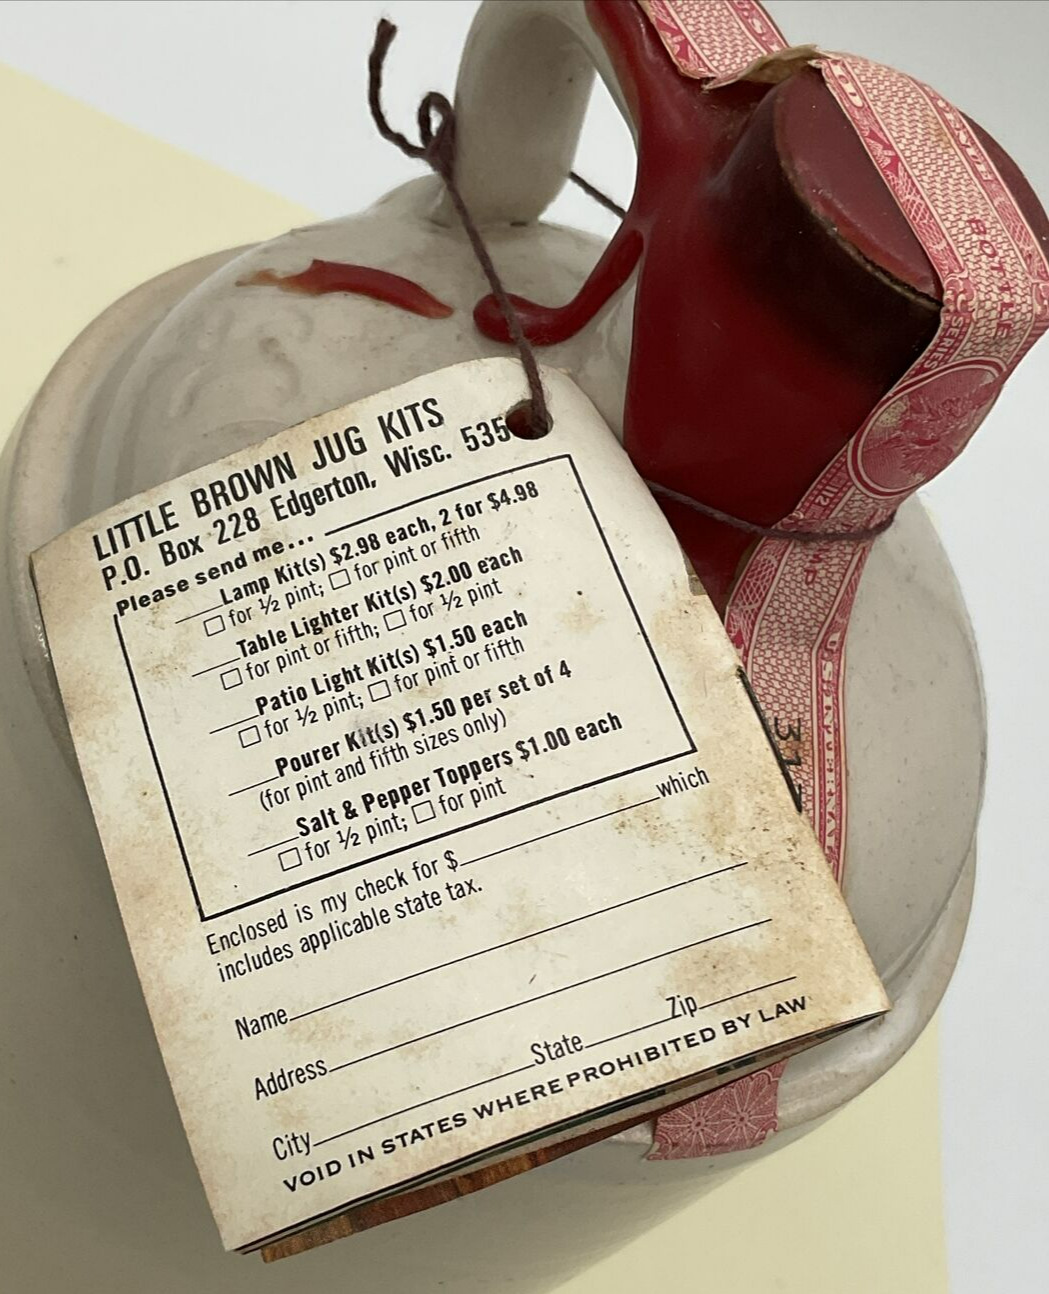 LITTLE BROWN JUG KITS
P.O. Box 228 Edgerton, Wisc. 535
Please send me...
____Lamp Kit(s) $2.98 each, 2 for $4.98
☐ for ½ pint; ☐ for pint or fifth
____Table Lighter Kit(s) $2.00 each
☐ for pint or fifth; ☐ for ½ pint
____Patio Light Kit(s) $1.50 each
☐ for ½ pint; ☐ for pint or fifth
____Pourer Kit(s) $1.50 per set of 4
(for pint and fifth sizes only)
____Salt & Pepper Toppers $1.00 each
☐ for ½ pint; ☐ for pint
Enclosed is my check for $____which
includes applicable state tax.
Name____
Address____
City____State____Zip____
VOID IN STATES WHERE PROHIBITED BY LAW
BOTTLE
SERIES
112
31